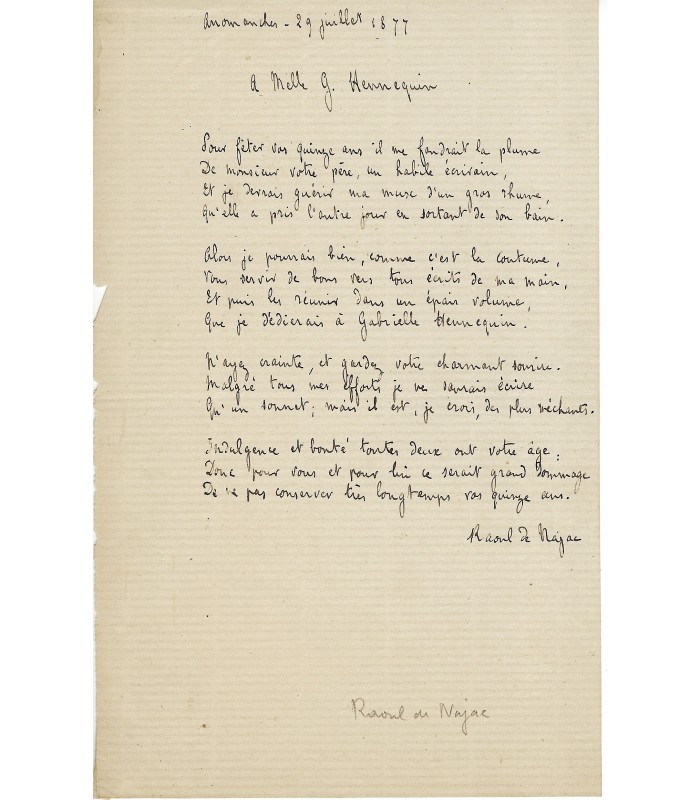 Arromanches - 29 juillet 1877
A Melle G. Hennequin
Pour fêter vos quinze ans il me faudrait la plume
De monsieur votre père, un habile écrivain,
Et je devrais guérir ma muse d'un gros rhume,
Qu'elle a pris l'autre jour en sortant de son bain.
Alors je pourrais bien, comme c'est la coutume,
Vous servir de bons vers tous écrits de ma main,
Et puis les réunir dans un épais volume,
Que je dédierais à Gabrielle Hennequin.
N'ayez crainte, et gardez votre charmant sourire.
Malgré tous mes efforts je ne saurais écrire
Qu'un sonnet; mais il est, je crois, des plus méchants.
Indulgence et bonté toutes deux ont votre âge;
Donc pour vous et pour lui ce serait grand dommage
De ne pas conserver très longtemps vos quinze ans.
Raoul de Najac
Raoul de Najac